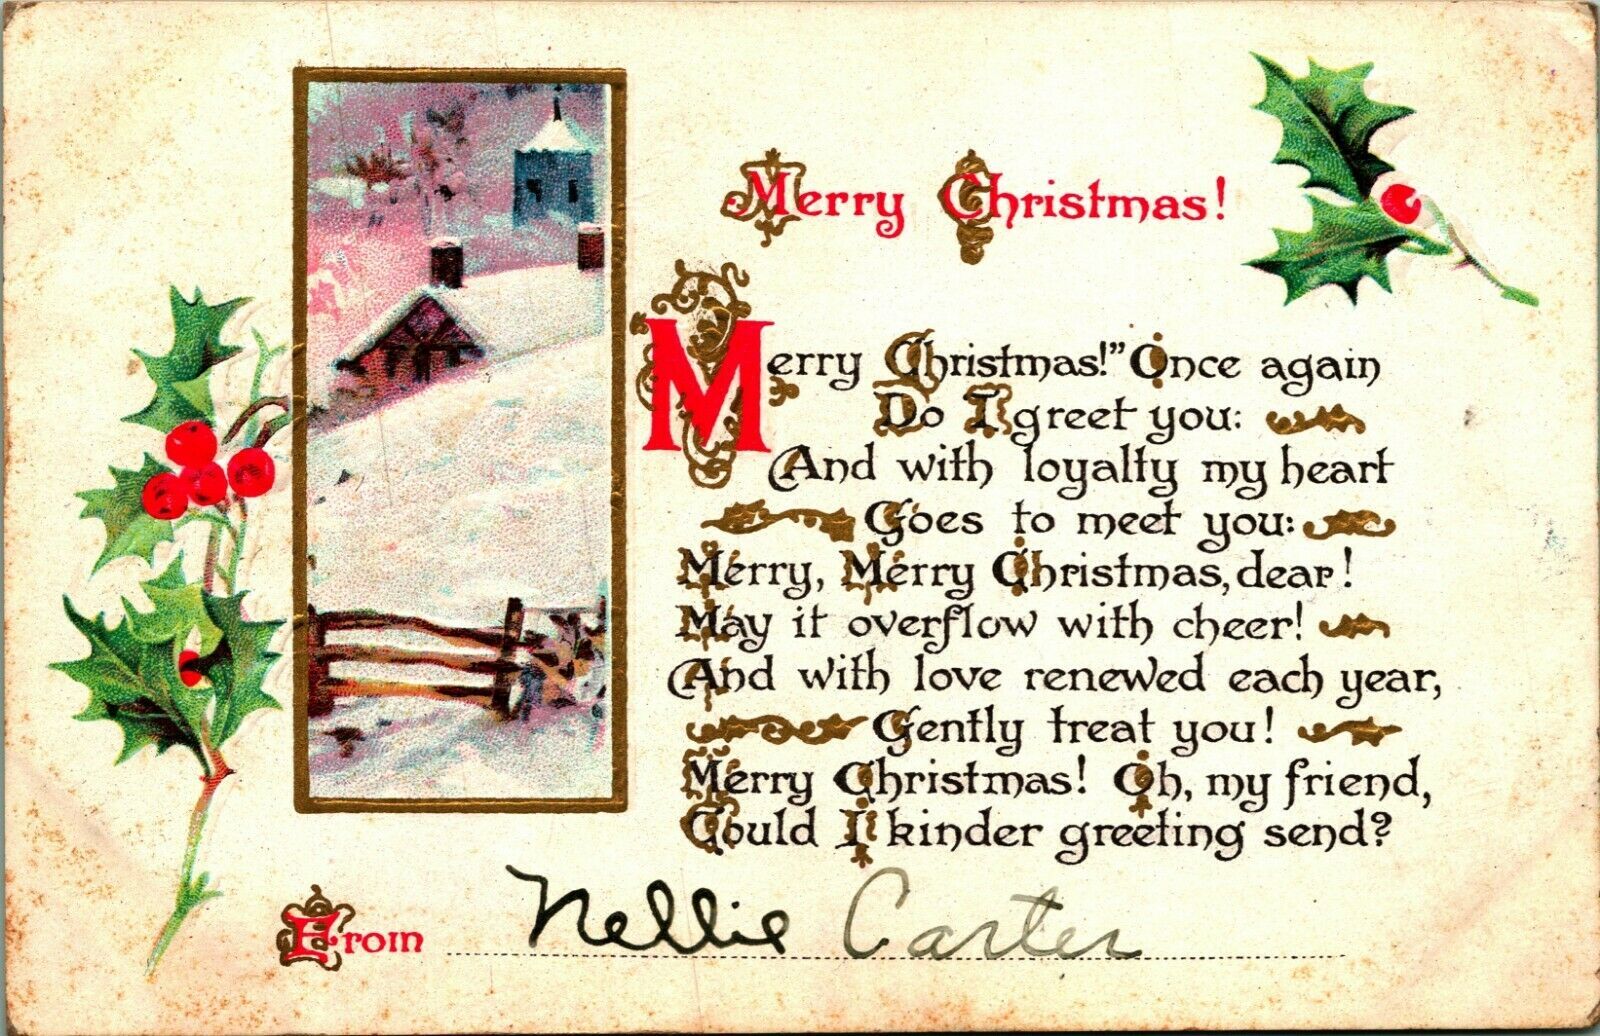 Merry Christmas!
Merry Christmas!" Once again
Do I greet you:
And with loyalty my heart
Goes to meet you:
Merry, Merry Christmas, dear!
May it overflow with cheer!
And with love renewed each year,
Gently treat you!
Merry Christmas! Oh, my friend,
Could I kinder greeting send?
From Nellie Carter